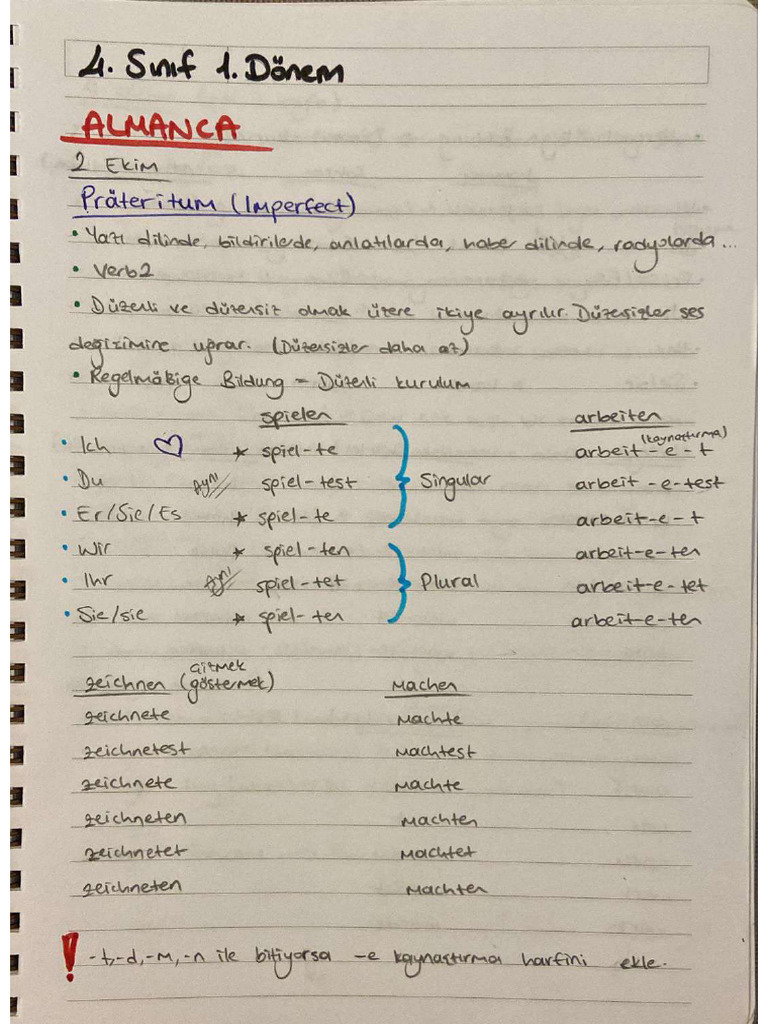 4. Sınıf 1. Dönem
ALMANCA
2 Ekim
Präteritum (Imperfect)
• Yazı dilinde, bildirilerde, anlatılarda, haber dilinde, radyolarda...
• Verb2
• Düzenli ve düzensiz olmak üzere ikiye ayrılır. Düzensizler ses
değişimine uğrar. (Düzensizler daha az)
• Regelmäßige Bildung = Düzenli kurulum
spielen arbeiten
• Ich ♡ * spiel-te arbeit-e-t (kaynaştırma)
• Du Aynı spiel-test Singular arbeit-e-test
• Er/Sie/Es * spiel-te arbeit-e-t
• Wir * spiel-ten arbeit-e-ten
• Ihr Aynı spiel-tet Plural arbeit-e-tet
• Sie/sie * spiel-ten arbeit-e-ten
zeichnen (göstermek) Machen
zeichnete Machte
zeichnetest Machtest
zeichnete Machte
zeichneten Machten
zeichnetet Machtet
zeichneten Machten
! -t,-d,-m,-n ile bitiyorsa -e kaynaştırma harfini ekle.